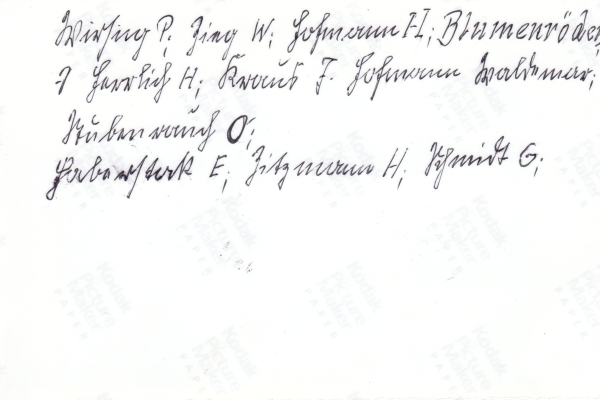 Wirsing P; Zieg W; Hofmann H; Blumenröder
? Herrlich H; Kraus F. Hofmann Waldemar;
Stubenrauch O;
Haberstak E; Zitzmann H; Schmidt G;
Kodak Picture Maker PAPER